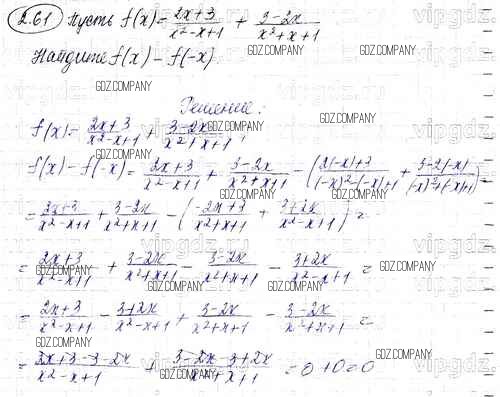 2.61 Пусть f(x) = (2x+3)/(x²-x+1) + (3-2x)/(x²+x+1)
Найдите f(x) - f(-x).
Решение:
f(x) = (2x+3)/(x²-x+1) + (3-2x)/(x²+x+1);
f(x) - f(-x) = (2x+3)/(x²-x+1) + (3-2x)/(x²+x+1) - (2(-x)+3)/((-x)²-(-x)+1) + (3-2(-x))/((-x)²+(-x)+1)) =
= (2x+3)/(x²-x+1) + (3-2x)/(x²+x+1) - (-2x+3)/(x²+x+1) + (3+2x)/(x²-x+1)) =
= (2x+3)/(x²-x+1) + (3-2x)/(x²+x+1) - (3-2x)/(x²+x+1) - (3+2x)/(x²-x+1) =
= (2x+3)/(x²-x+1) - (3+2x)/(x²-x+1) + (3-2x)/(x²+x+1) - (3-2x)/(x²+x+1) =
= (2x+3-3-2x)/(x²-x+1) + (3-2x-3+2x)/(x²+x+1) = 0+0=0
GDZ.COMPANY
vipgdz